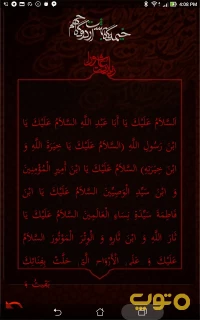 4:08 PM
السَّلَامُ عَلَيْكَ يَا أَبَا عَبْدِ اللَّهِ السَّلَامُ عَلَيْكَ يَا
ابْنَ رَسُولِ اللَّهِ (السَّلَامُ عَلَيْكَ يَا خِيَرَةَ اللَّهِ وَ
ابْنَ خِيَرَتِهِ) السَّلَامُ عَلَيْكَ يَا ابْنَ أَمِيرِ الْمُؤْمِنِينَ
وَ ابْنَ سَيِّدِ الْوَصِيِّينَ السَّلَامُ عَلَيْكَ يَا ابْنَ
فَاطِمَةَ سَيِّدَةِ نِسَاءِ الْعَالَمِينَ السَّلَامُ عَلَيْكَ يَا
ثَارَ اللَّهِ وَ ابْنَ ثَارِهِ وَ الْوِتْرَ الْمَوْتُورَ السَّلَامُ
عَلَيْكَ وَ عَلَى الْأَرْوَاحِ الَّتِي حَلَّتْ بِفِنَائِكَ
توپ